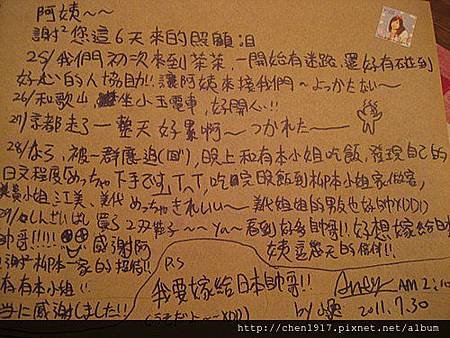 阿姨～～
謝²您這6天來的照顧
25/我們初次來到茶茶,一開始有迷路,還好有碰到
好心的人協助!!讓阿姨來接我們～よっかたない～
26/和歌山,坐小玉電車,好開心!!
27/京都走了一整天好累啊～つかれた～
28/なら,被一群鹿追(回),晚上和有本小姐吃飯,發現自己的
日文程度めっちゃ下手です T^T,吃完晚飯到柳本小姐家做客,
小姐江美、義代めっちゃきれいい～義代姐姐的男友也好帥XDD)
29/しんさいばし買了2双鞋子～～Ya～看到好多帥哥!!好想嫁給日本
帥哥!!!!! 感謝阿
姨這幾天的陪伴!!
謝²柳本一家的招待!!
有有本小姐!!
当に感謝しました!!
P.S
我要嫁給日本帥哥!!
(うそだよ～～XDD)
Andy AM 2:10
by 小
2011.7.30
http://chen1917.pixnet.net/album